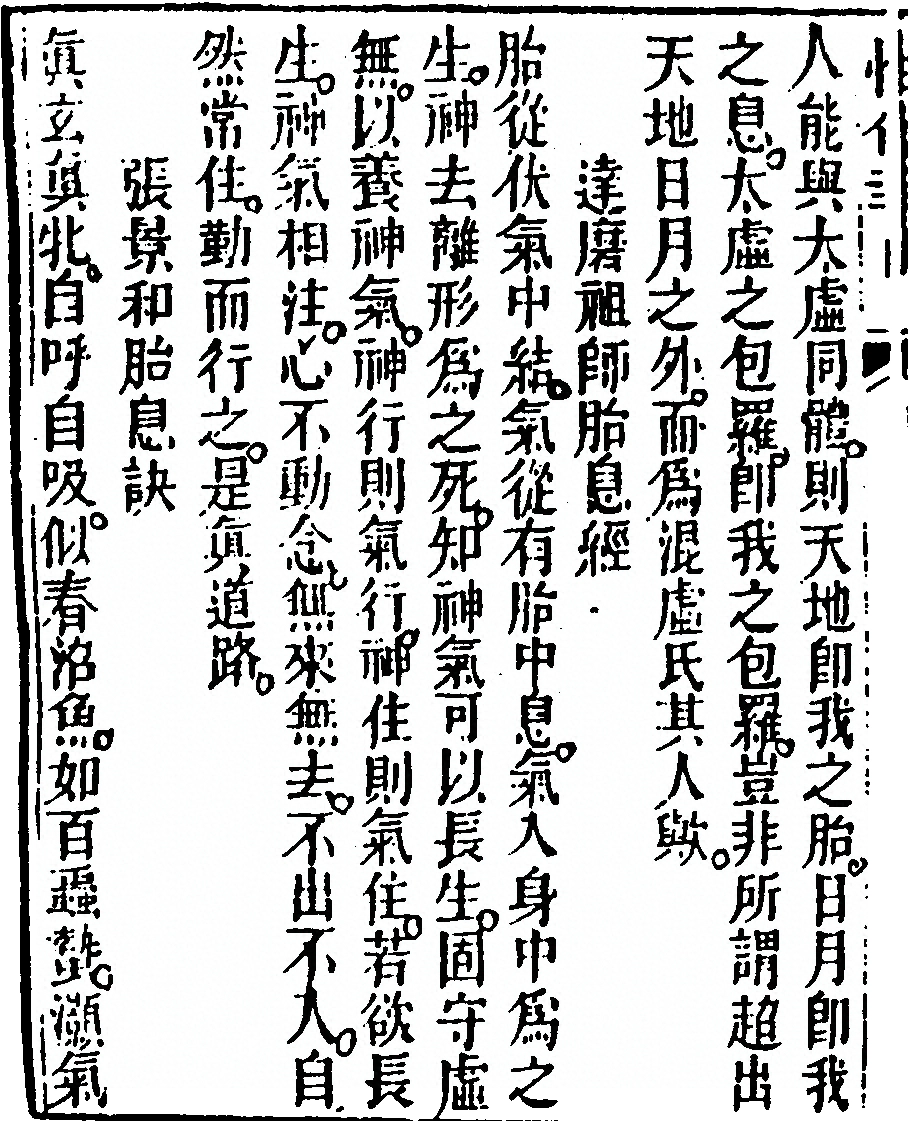 人能與太虛同體。則天地卽我之胎。日月卽我
之息。太虛之包羅。卽我之包羅。豈非所謂超出
天地日月之外。而爲混虛氏其人歟。
達磨祖師胎息經
胎從伏氣中結。氣從有胎中息。氣入身中爲之
生。神去離形爲之死。知神氣可以長生。固守虛
無。以養神氣。神行則氣行。神住則氣住。若欲長
生。神氣相注。心不動念。無來無去。不出不入。自
然常住。勤而行之。是眞道路。
張景和胎息訣
眞玄眞牝。自呼自吸。似春沼魚。如百蟲蟄。灝氣